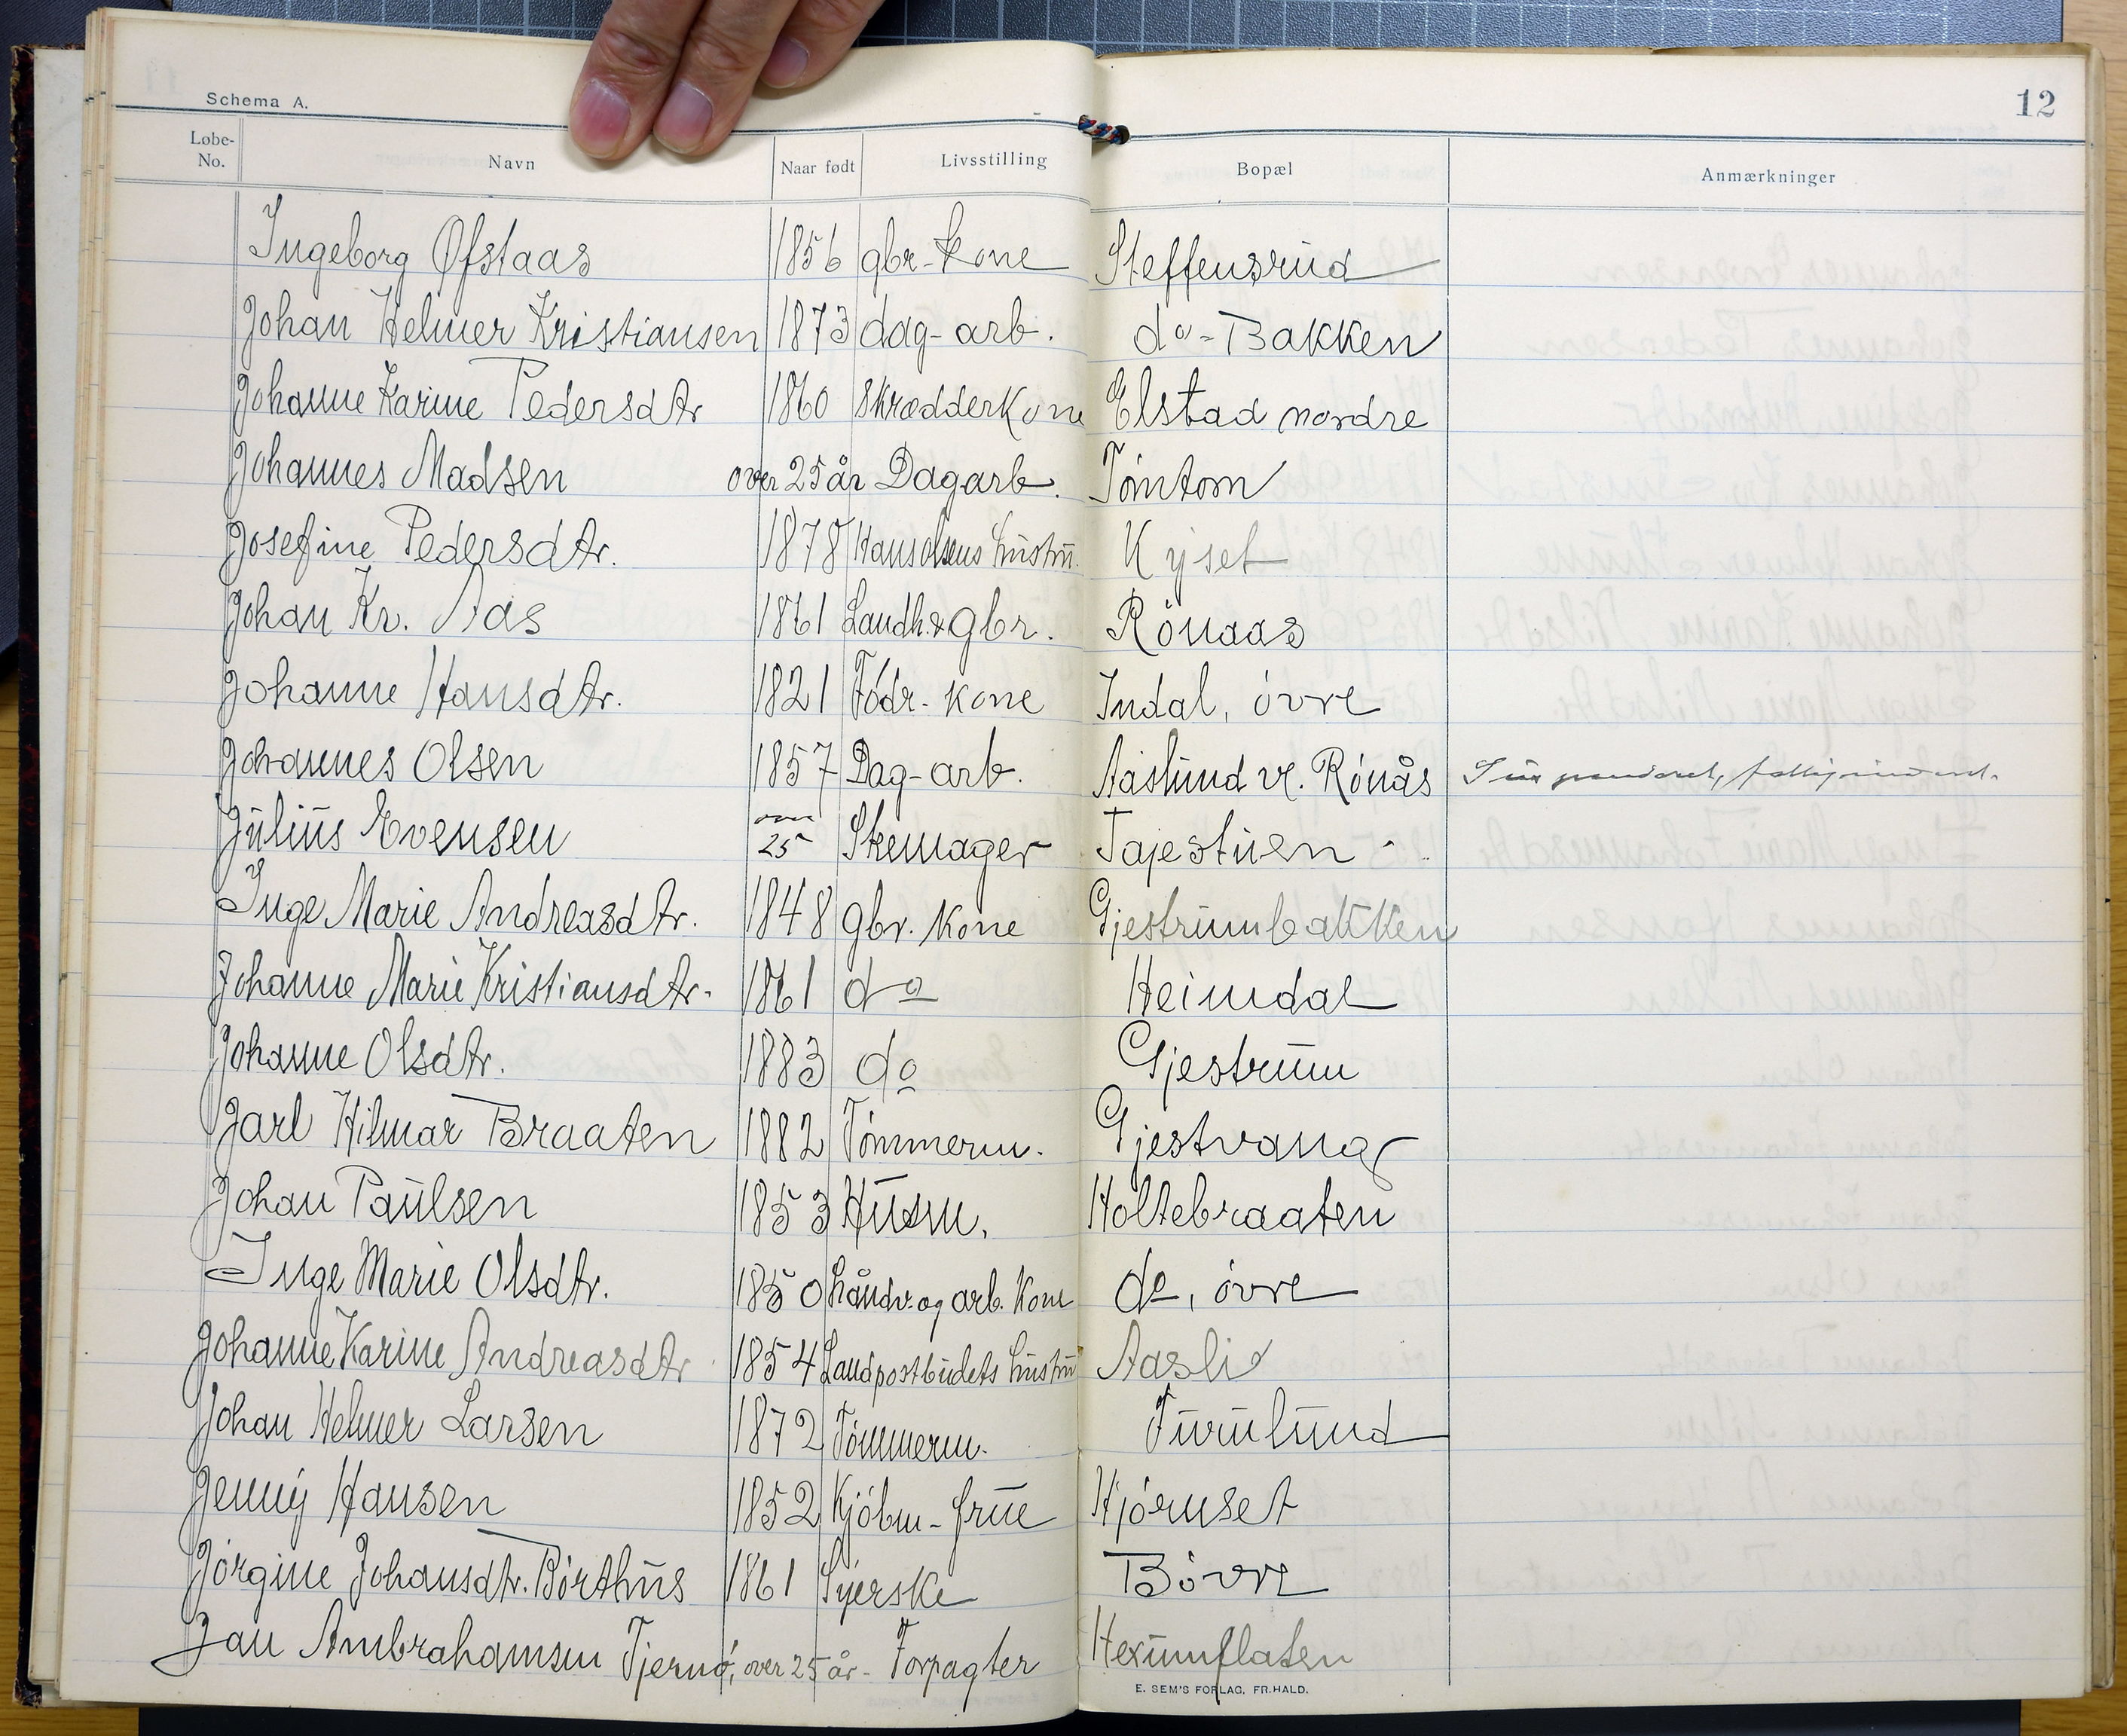 Schema A.
12
Løbe-No. Navn Naar født Livsstilling Bopæl Anmærkninger
Ingeborg Øfstaas 1856 gbr-kone Steffensrud
Johan Helmer Kristiansen 1873 dag-arb. do-Bakken
Johanne Karine Pedersdtr 1860 Skrædderkone Elstad nordre
Johannes Madsen over 25 år Dagarb. Tömtom
Josefine Pedersdtr. 1878 Hans Olsens hustru Kyset
Johan Kr. Aas 1861 Landh. & gbr. Rönaas
Johanne Hansdtr. 1821 Födr-kone Indal, övre
Johannes Olsen 1857 Dag-arb. Aaslund v. Rönås
Julius Evensen over 25 Skemager Tajestuen
Inge Marie Andreasdtr. 1848 gbr. kone Gjestrumbakken
Johanne Marie Kristiansdtr. 1861 do Heimdal
Johanne Olsdtr. 1883 do Gjestrum
Jarl Hilmar Braaten 1882 Tömmerm. Gjestvang
Johan Paulsen 1853 Husm. Holtebraaten
Inge Marie Olsdtr. 1850 håndv. og arb. kone do, övre
Johanne Karine Andreasdtr 1854 Landpostbudets hustru Aasli
Johan Helmer Larsen 1872 Tömmerm. Furulund
Jenny Hansen 1852 Kjöbm-frue Hjörnset
Jörgine Johansdtr. Börthus 1861 Syerske Bövre
Jan Ambrahamsen Tjernö, over 25 år - Forpagter Hexumflaten
E. SEM'S FORLAG, FR.HALD.